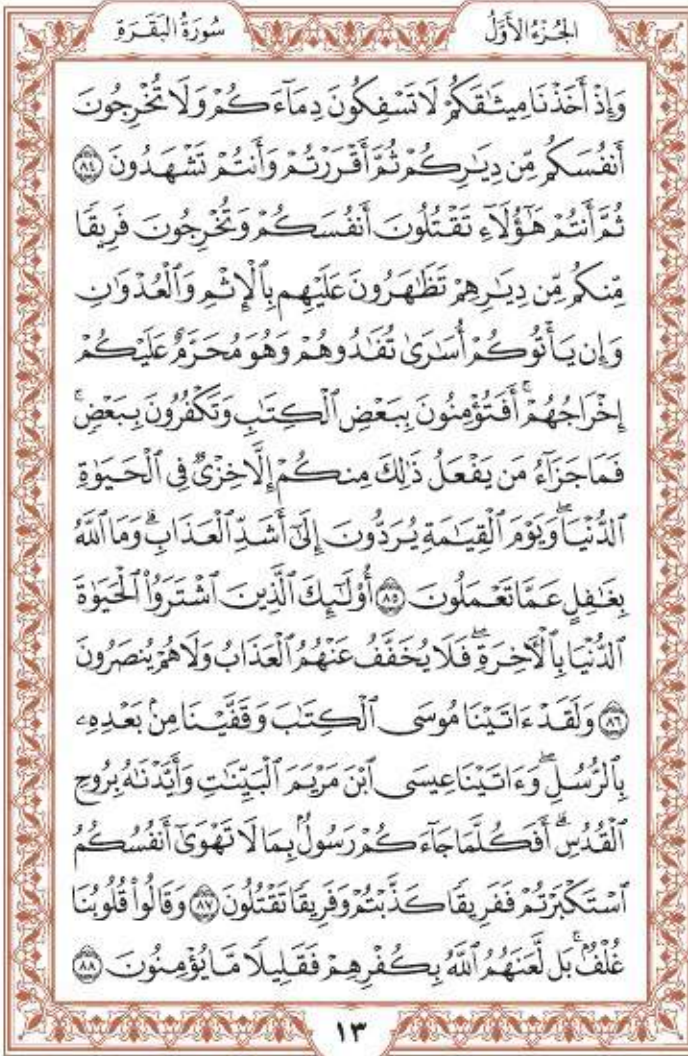 سُورَةُ الْبَقَرَةِ
الجُزْءُ الأَوَّلُ
وَإِذْ أَخَذْنَا مِيثَٰقَكُمْ لَا تَسْفِكُونَ دِمَآءَكُمْ وَلَا تُخْرِجُونَ
أَنفُسَكُم مِّن دِيَٰرِكُمْ ثُمَّ أَقْرَرْتُمْ وَأَنتُمْ تَشْهَدُونَ ٨٤
ثُمَّ أَنتُمْ هَٰٓؤُلَآءِ تَقْتُلُونَ أَنفُسَكُمْ وَتُخْرِجُونَ فَرِيقًا
مِّنكُم مِّن دِيَٰرِهِمْ تَظَٰهَرُونَ عَلَيْهِم بِٱلْإِثْمِ وَٱلْعُدْوَٰنِ
وَإِن يَأْتُوكُمْ أُسَٰرَىٰ تُفَٰدُوهُمْ وَهُوَ مُحَرَّمٌ عَلَيْكُمْ
إِخْرَاجُهُمْ ۚ أَفَتُؤْمِنُونَ بِبَعْضِ ٱلْكِتَٰبِ وَتَكْفُرُونَ بِبَعْضٍ ۚ
فَمَا جَزَآءُ مَن يَفْعَلُ ذَٰلِكَ مِنكُمْ إِلَّا خِزْىٌ فِى ٱلْحَيَوٰةِ
ٱلدُّنْيَا ۖ وَيَوْمَ ٱلْقِيَٰمَةِ يُرَدُّونَ إِلَىٰٓ أَشَدِّ ٱلْعَذَابِ ۗ وَمَا ٱللَّهُ
بِغَٰفِلٍ عَمَّا تَعْمَلُونَ ٨٥ أُو۟لَٰٓئِكَ ٱلَّذِينَ ٱشْتَرَوُا۟ ٱلْحَيَوٰةَ
ٱلدُّنْيَا بِٱلْـَٔاخِرَةِ ۖ فَلَا يُخَفَّفُ عَنْهُمُ ٱلْعَذَابُ وَلَا هُمْ يُنصَرُونَ
٨٦ وَلَقَدْ ءَاتَيْنَا مُوسَى ٱلْكِتَٰبَ وَقَفَّيْنَا مِنۢ بَعْدِهِۦ
بِٱلرُّسُلِ ۖ وَءَاتَيْنَا عِيسَى ٱبْنَ مَرْيَمَ ٱلْبَيِّنَٰتِ وَأَيَّدْنَٰهُ بِرُوحِ
ٱلْقُدُسِ ۗ أَفَكُلَّمَا جَآءَكُمْ رَسُولٌۢ بِمَا لَا تَهْوَىٰٓ أَنفُسُكُمُ
ٱسْتَكْبَرْتُمْ فَفَرِيقًا كَذَّبْتُمْ وَفَرِيقًا تَقْتُلُونَ ٨٧ وَقَالُوا۟ قُلُوبُنَا
غُلْفٌۢ ۚ بَل لَّعَنَهُمُ ٱللَّهُ بِكُفْرِهِمْ فَقَلِيلًا مَّا يُؤْمِنُونَ ٨٨
١٣